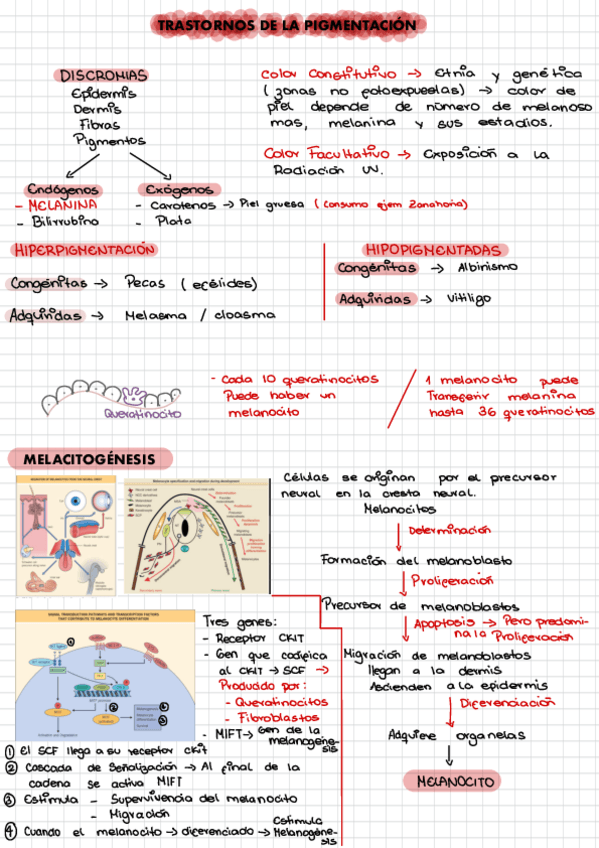 TRASTORNOS DE LA PIGMENTACIÓN
DISCROMIAS
Epidermis
Dermis
Fibras
Pigmentos
Endógenos
- MELANINA
- Bilirrubino
Exógenos
- Carotenos → Piel gruesa (Consumo ejem Zanahoria)
- Plata
Color Constitutivo → Etnia y genética
(zonas no fotoexpuestas) → color de
piel depende de número de melanoso
mas, melanina y sus estadios.
Color Facultativo → Exposición a la
Radiación UV.
HIPERPIGMENTACIÓN
Congénitas → Pecas (efélides)
Adquiridas → Melasma / cloasma
HIPOPIGMENTADAS
Congénitas → Albinismo
Adquiridas → Vitiligo
Queratinocito
- Cada 10 queratinocitos
Puede haber un
melanocito
1 melanocito puede
Transferir melanina
hasta 36 queratinocitos
MELACITOGÉNESIS
Células se originan por el precursor
neural en la cresta neural.
Melanocitos
Determinación
Formación del melanoblasto
Proliferación
Precursor de melanoblastos
Apoptosis → Pero predomi-
na la Proliferación
Migración de melanoblastos
llegan a la dermis
Ascienden a la epidermis
Diferenciación
Adquiere organelas
MELANOCITO
SIGNAL TRANSDUCTION PATHWAYS AND TRANSCRIPTION FACTORS
THAT CONTRIBUTE TO MELANOCYTE DIFFERENTIATION
Tres genes:
- Receptor CKIT
- Gen que codifica
al CKIT → SCF →
Producido por:
- Queratinocitos
- Fibroblastos
- MIFT → Gen de la
melanogéne-
sis
① El SCF llega a su receptor CKit
② Cascada de Señalización → Al final de la
cadena se activa MIFT
③ Estimula - Supervivencia del melanocito
- Migración
④ Cuando el melanocito → diferenciado → Estimula
Melanogéne-
sis